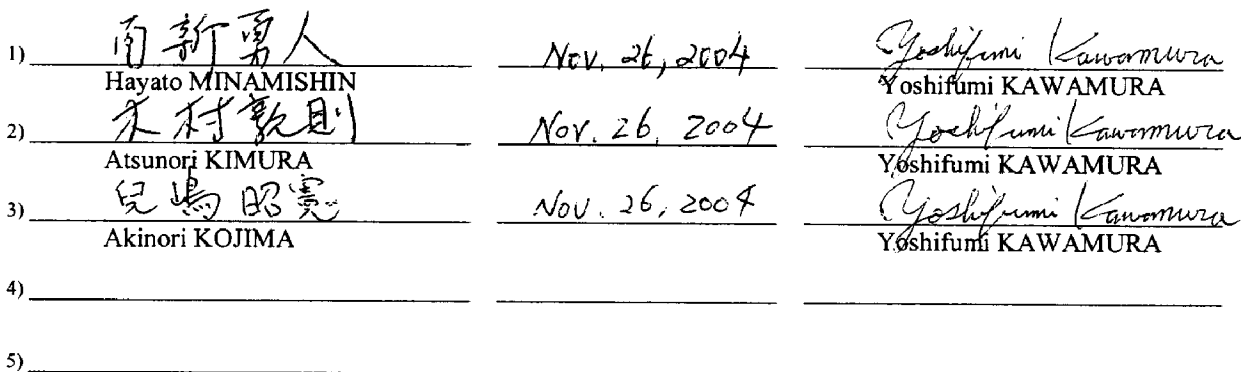 1) 南新勇人 Nov. 26, 2004 Yoshifumi Kawamura
Hayato MINAMISHIN Yoshifumi KAWAMURA
2) 木村敦則 Nov. 26, 2004 Yoshifumi Kawamura
Atsunori KIMURA Yoshifumi KAWAMURA
3) 兒嶋昭寛 Nov. 26, 2004 Yoshifumi Kawamura
Akinori KOJIMA Yoshifumi KAWAMURA
4)
5)